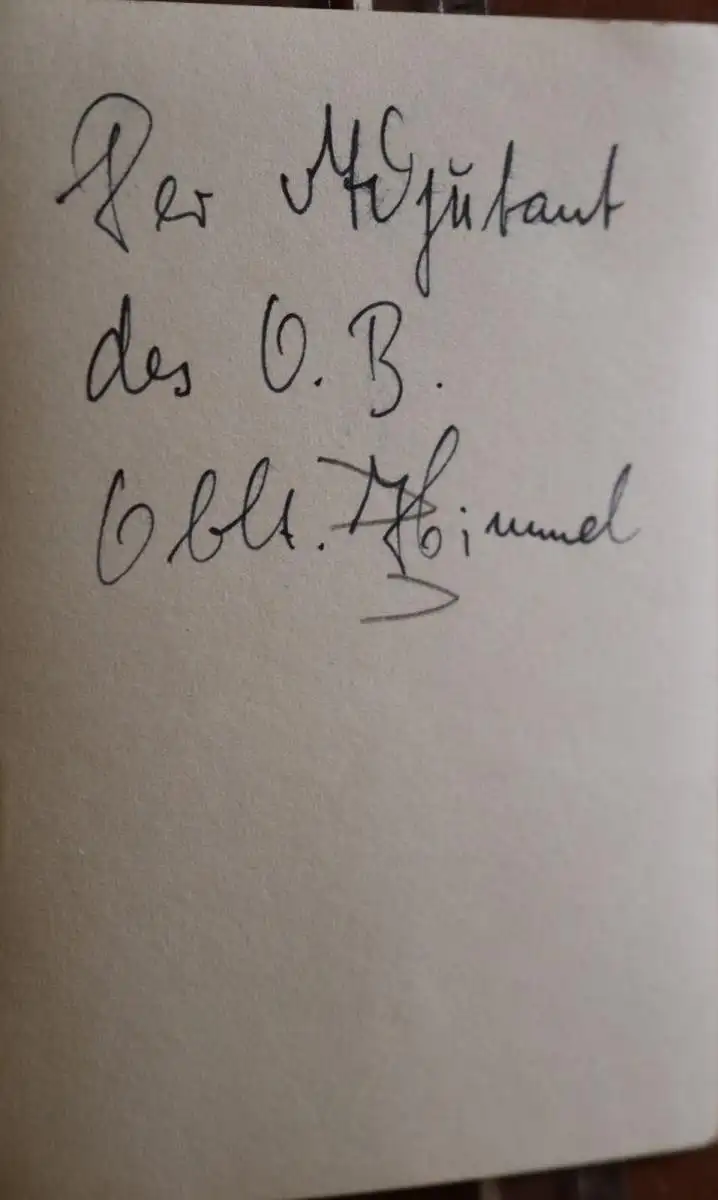 Der Adjutant
des O. B.
Oblt. Himmel